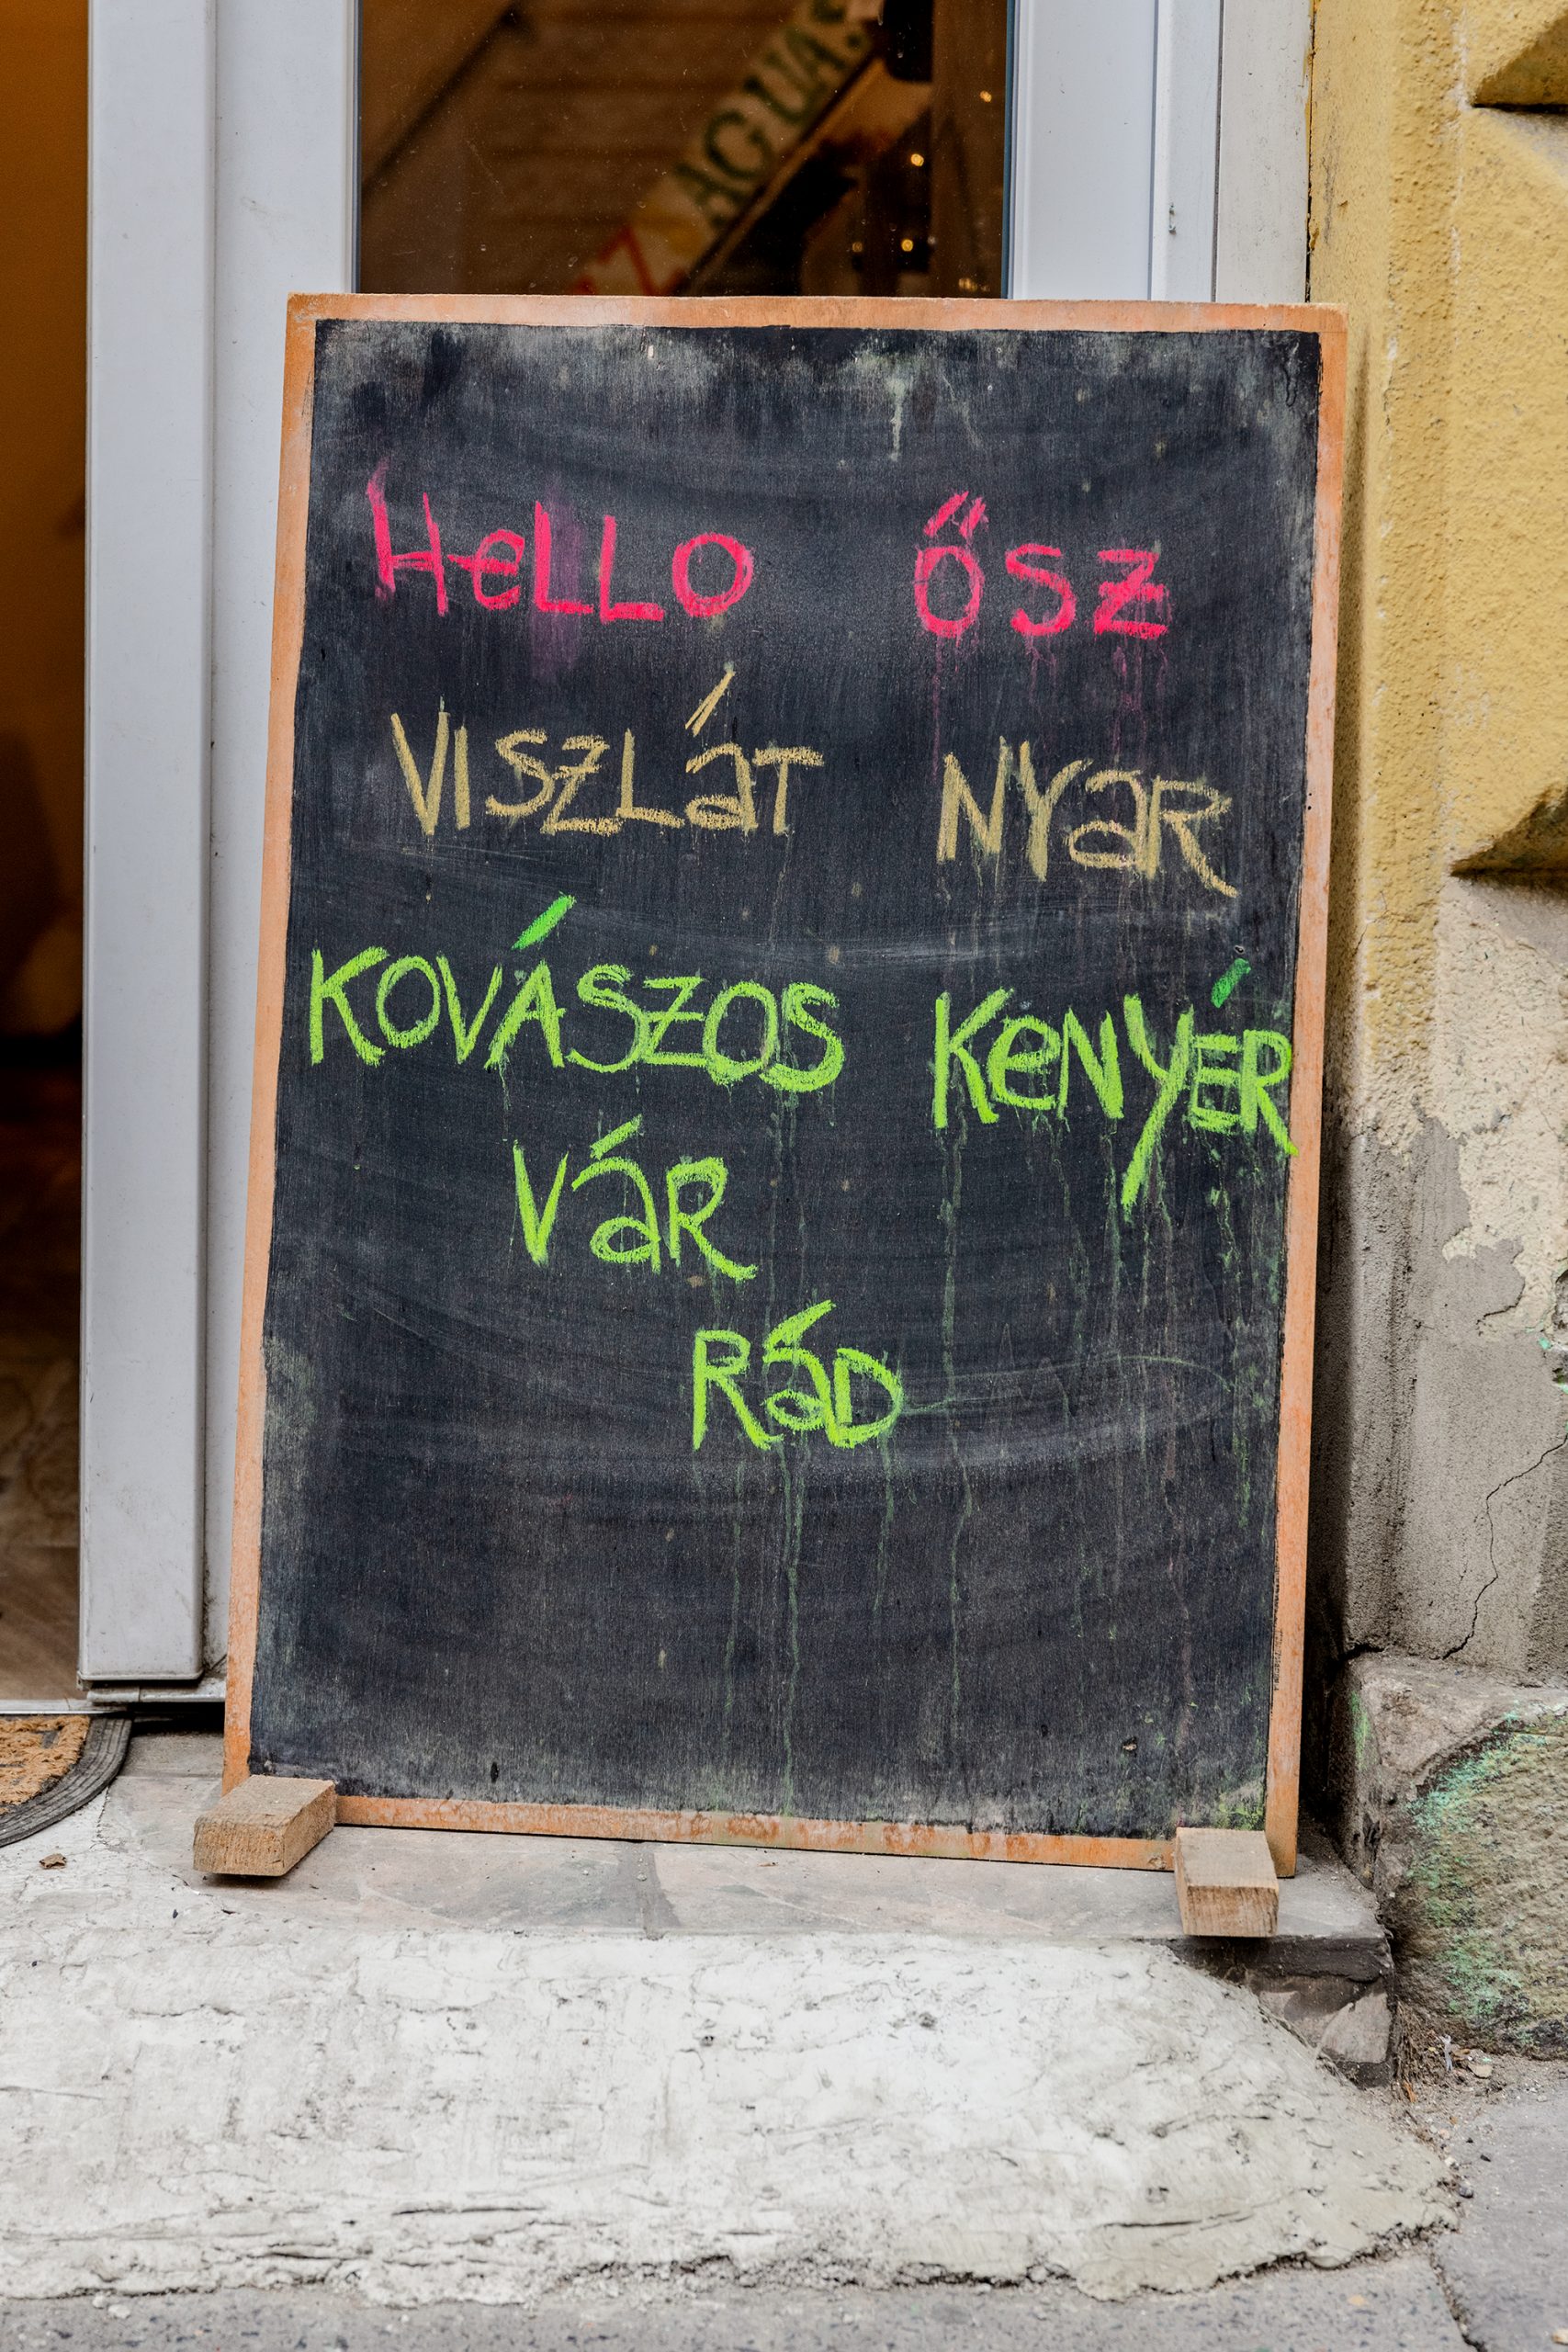 AGUAS
HeLLO ŐSZ
VISZLáT NYaR
KOVÁSZOS KeNYÉR
VáR
RáD